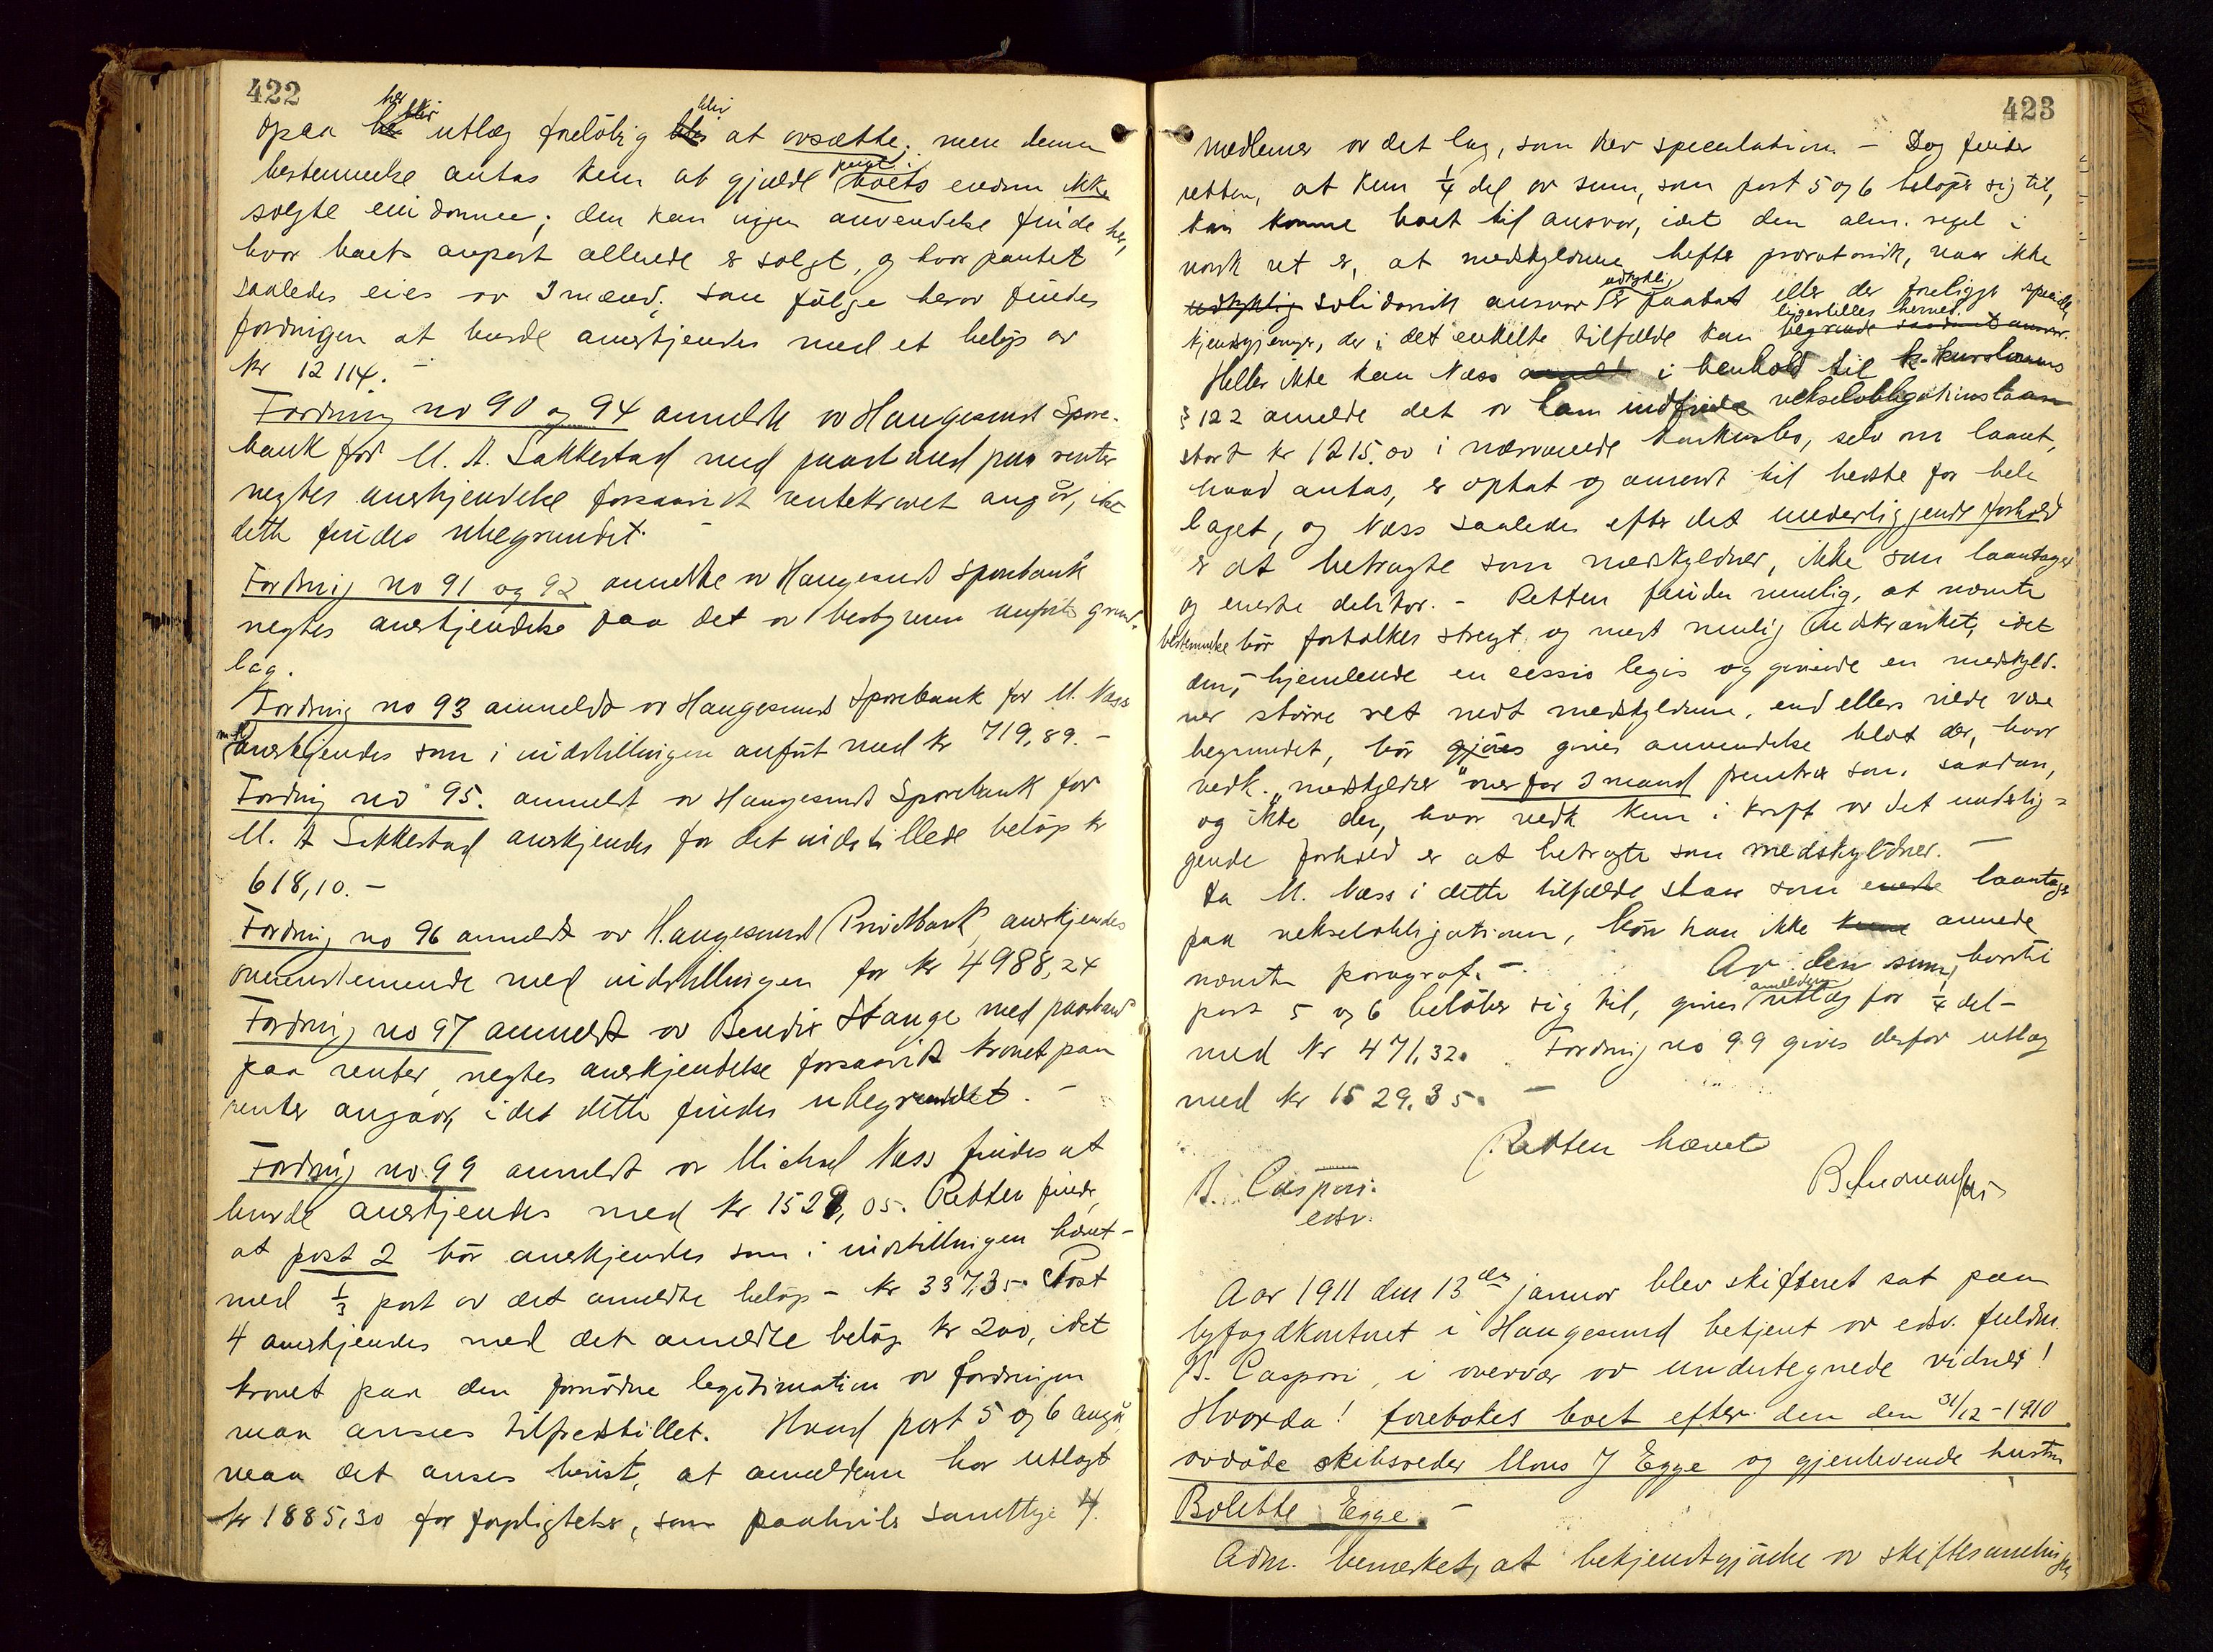 422
opaa her blir utlæg foreløbig blir at avsætte; men denne
bestemmelse antas kun at gjælde pengeboets endnu ikke
solgte eiendomme; den kan ingen anvendelse finde her,
hvor boets anpart allerede er solgt, og hvor pantet
saaledes eies av 3 mænd. Som følge herav findes
fordringen at burde anerkjendes med et beløp av
kr 12114. –
Fordring no 90 og 94 anmeldt av Haugesund Spare-
bank for M. A. Sakkestad med paastand paa renter
negtes anerkjendelse forsaavidt rentekravet angår, idet
dette findes ubegrundet. –
Fordring no 91 og 92 anmeldte av Haugesund Sparebank
negtes anerkjendelse paa det av bestyreren anførte grund-
lag.
Fordring no 93 anmeldt av Haugesund Sparebank for M. Næss
anerkjendes som i indstillingen anført med kr 719,89. –
Fordring no 95. anmeldt av Haugesund Sparebank for
M. A Sakkestad anerkjendes for det indstillede beløp kr
618,10. –
Fordring no 96 anmeldt av Haugesund Privatbank, anerkjendes
overensstemmende med indstillingen for kr 4988,24
Fordring no 97 anmeldt av Bendix Stange med paastand
paa renter, negtes anerkjendelse forsaavidt kravet paa
renter angåar, idet dette findes ubegrundet. –
Fordring no. 99 anmeldt av Michael Næss findes at
burde anerkjendes med kr 1529,05. Retten finder,
at post 2 bør anerkjendes som i indstillingen hævet –
med 1/3 part av det anmeldte beløp – kr 337,35. Post
4 anerkjendes med det anmeldte beløp kr 200, idet
kravet paa den fornødne legitimation av fordringen
maa ansees tilfredsstillet. Hvad post 5 og 6 angår,
maa det anses bevist, at anmelderen har utlagt
kr 1885,30 for forpligtelser, som paahviler samtlige 4.
423
medlemer av det lag, som drev speculation – Dog finder
retten, at kun 1/4 del av sum, som post 5 og 6 beløper sig til,
kan komme boet til ansvar, idet den alm. regel i
norsk ret er, at medskyldnere hefter proratarisk, naar ikke
udtrykkelig solidarisk ansvar udtrykkelig er paatat eller der foreligger specielle
kjendsgjerninger, der i det enkelte tilfælde kan ligestilles hermed. begrunde saadant ansvar.
Heller ikke kan Næss anmelde i henhold til k. kurslovens
§ 122 anmelde det av ham indfriede vekselobligationslaan
stort kr 1215.00 i nærværende konkursbo, selv om laanet,
hvad antas, er optat og anvendt til bedste for hele
laget, og Næss saaledes efter det underliggjende forhold
er at betragte som medskyldner, ikke som laantager
og eneste debitor. – Retten finder nemlig, at nævnte
bestemmelse bør fortolkes strengt og mest mulig indskrænket, idet
den, – hjemlende en cessio legis og givende en medskyld-
ner større ret mot medskyldnerne, end ellers vilde være
begrundet, bør gjøres gives anvendelse blot der, hvor
vedk. "medskyldner" overfor 3 mand fremtrær som saadan,
og ikke der, hvor vedk kun i kraft av det underlig-
gende forhold er at betragte som medskyldner. –
Da M. Næss i dette tilfælde staar som eneste laantager
paa vekselobligationen, bør han ikke kunne anvende
nævnte paragraf. – Av den sum, hvortil
post 5 og 6 beløber sig til, gives anmelderen utlæg for 1/4 del –
med kr 471,32. Fordring no 99 gives derfor utlæg
med kr 1529.35. –
Retten hævet
B. Caspari.
edsv.
Aar 1911 den 13de januar blev skifteret sat paa
byfogdkontoret i Haugesund betjent av edsv. fuldm.
B. Caspari, i overvær av undertegnede vidner!
Hvorda! foretokes boet efter den den 31/12-1910
avdøde skibsreder Mons J Egge og gjenlevende hustru
Bolette Egge. –
Adm. bemerket, at bekjendtgjørelse av skiftesamling